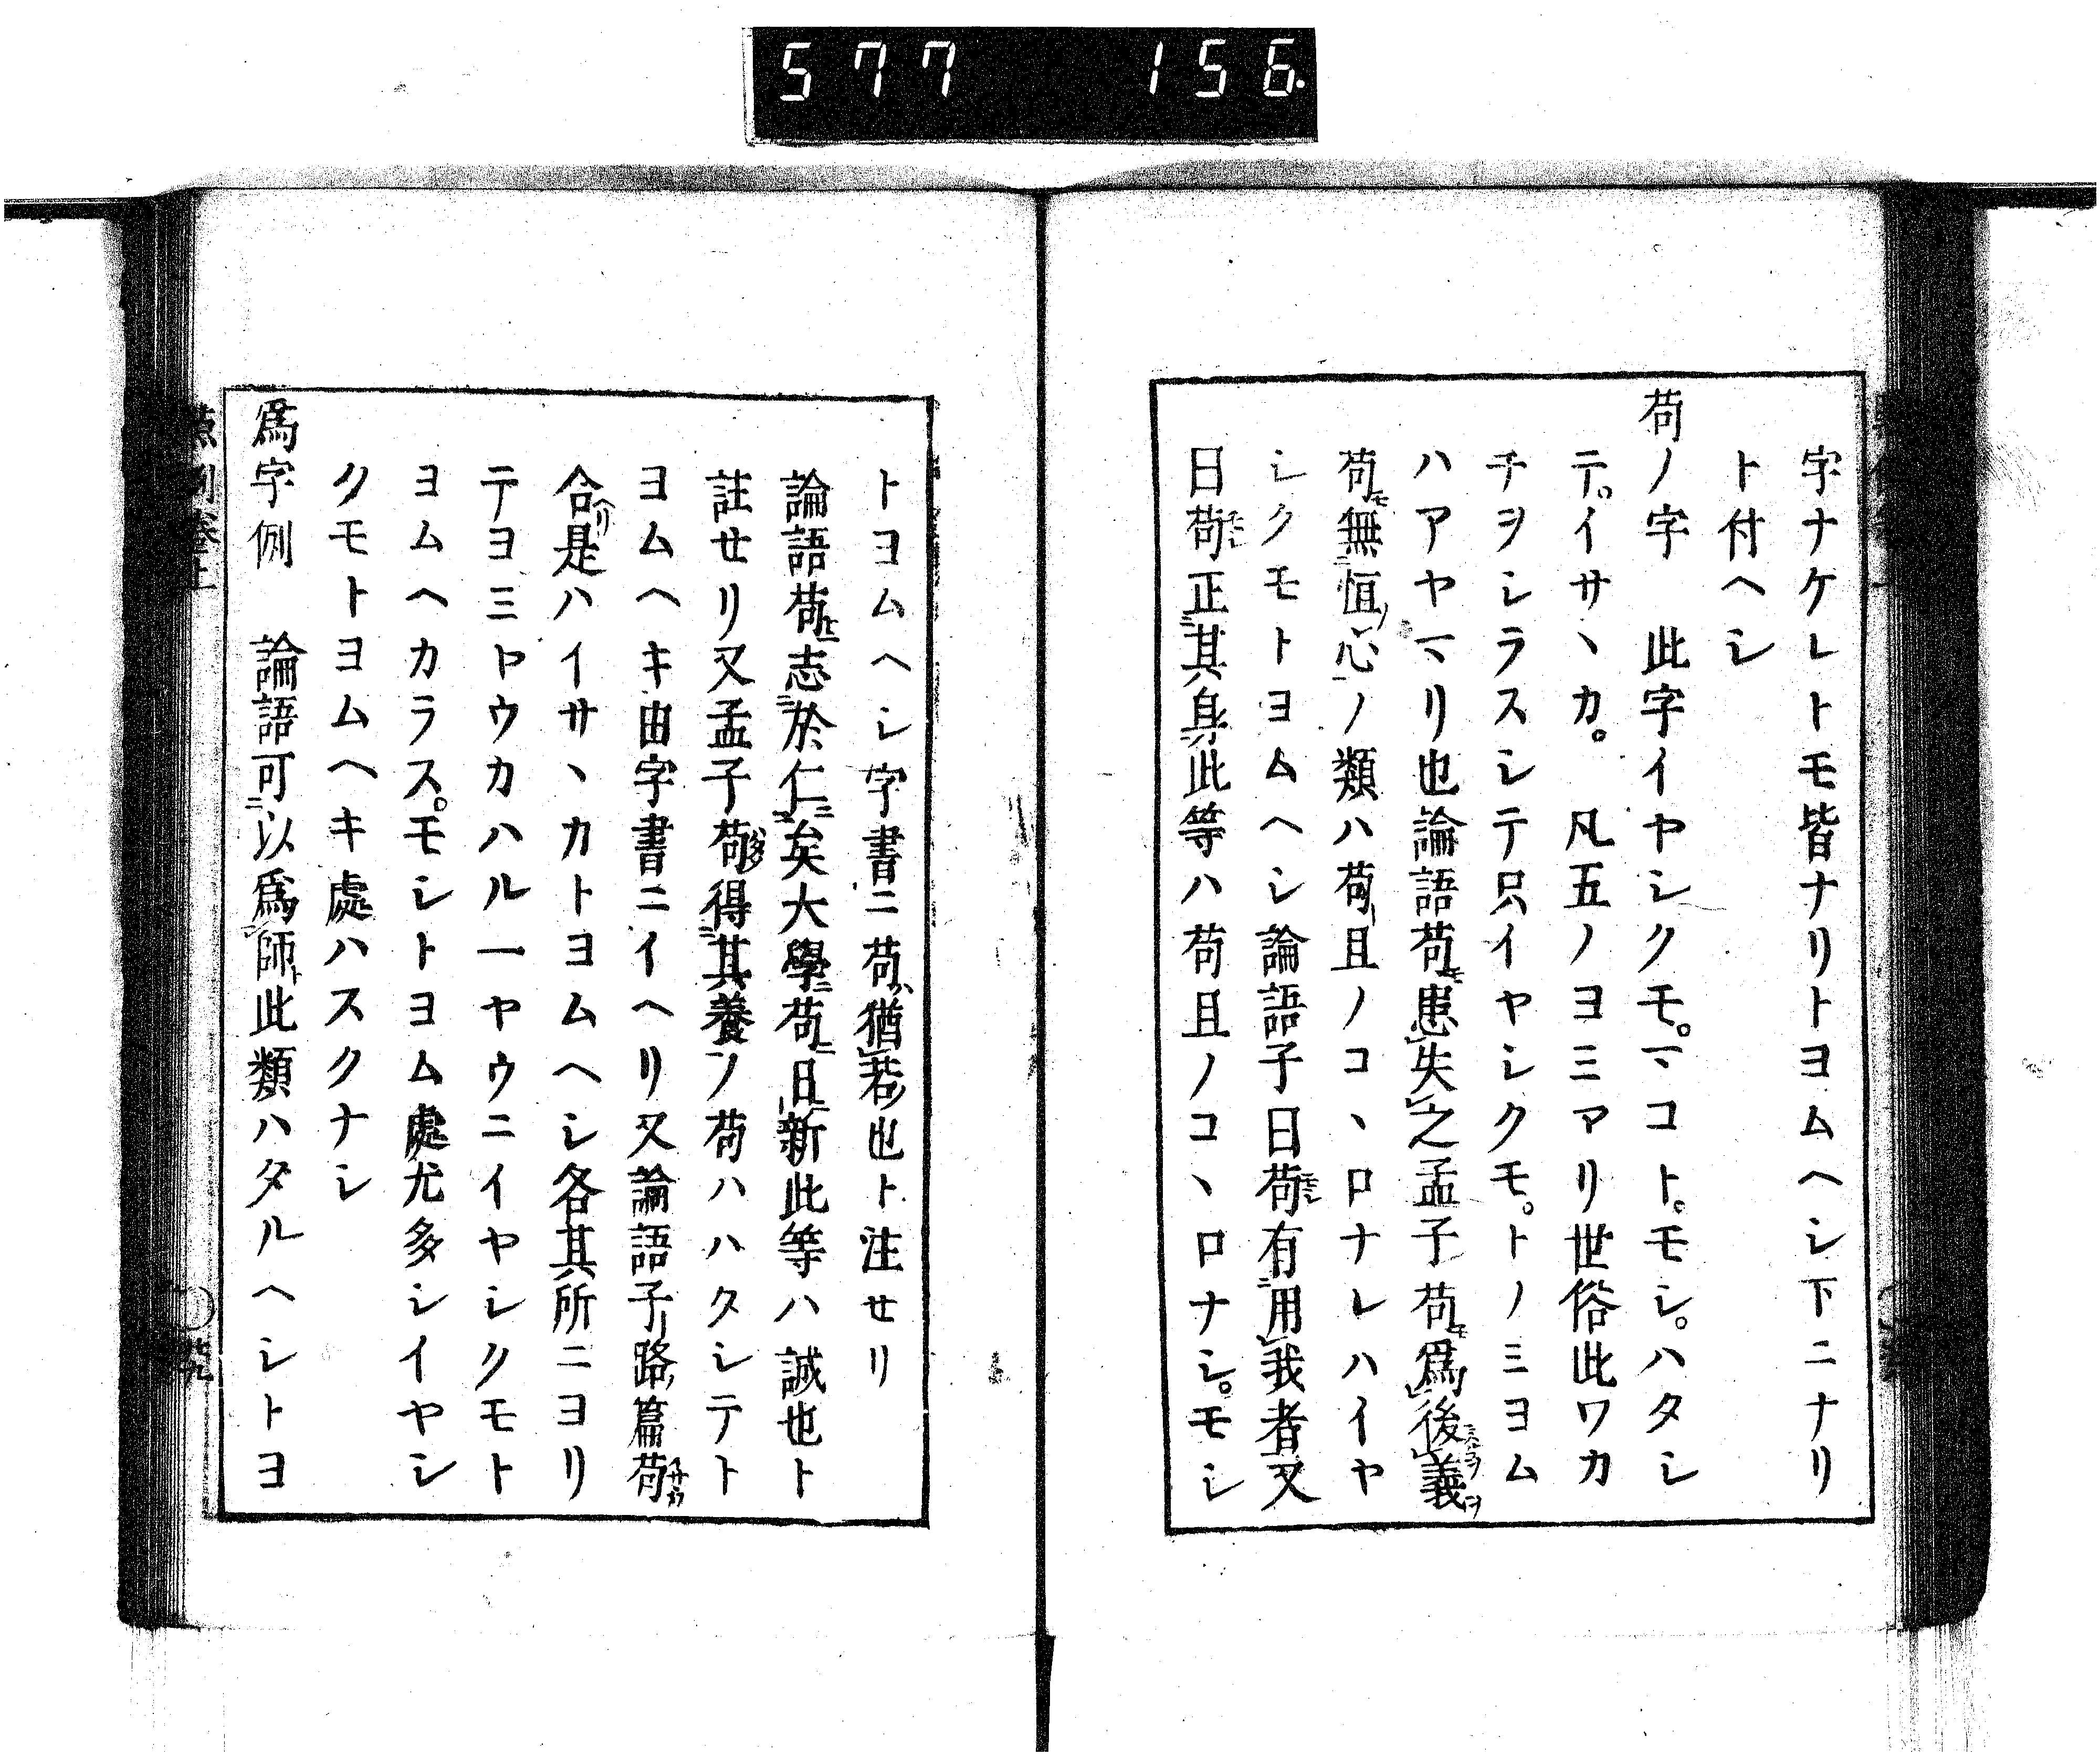 577 156
字ナケレトモ皆ナリトヨムヘシ下ニナリ
ト付ヘシ
苟ノ字 此字イヤシクモ。マコト。モシ。ハタシ
テ。イサヽカ。 凡五ノヨミアリ世俗此ワカ
チヲシラスシテ只イヤシクモ。トノミヨム
ハアヤマリ也論語苟モ患失之孟子苟モ爲後義ヲ
苟モ無恒心ノ類ハ苟且ノコヽロナレハイヤ
シクモトヨムヘシ論語子曰苟モシ有用我者又
曰苟モシ正其身此等ハ苟且ノコヽロナシ。モシ
トヨムヘシ字書ニ苟ハ猶若也ト注セリ
論語苟ニ志於仁矣大學ニ苟ニ日新此等ハ誠也ト
註セリ又孟子苟得其養ノ苟ハハタシテト
ヨムヘキ由字書ニイヘリ又論語子路篇苟
合ヘリ是ハイサヽカトヨムヘシ各其所ニヨリ
テヨミヤウカハル一ヤウニイヤシクモト
ヨムヘカラス。モシトヨム處尤多シイヤシ
クモトヨムヘキ處ハスクナシ
爲字例 論語可以爲師ト此類ハタルヘシトヨ